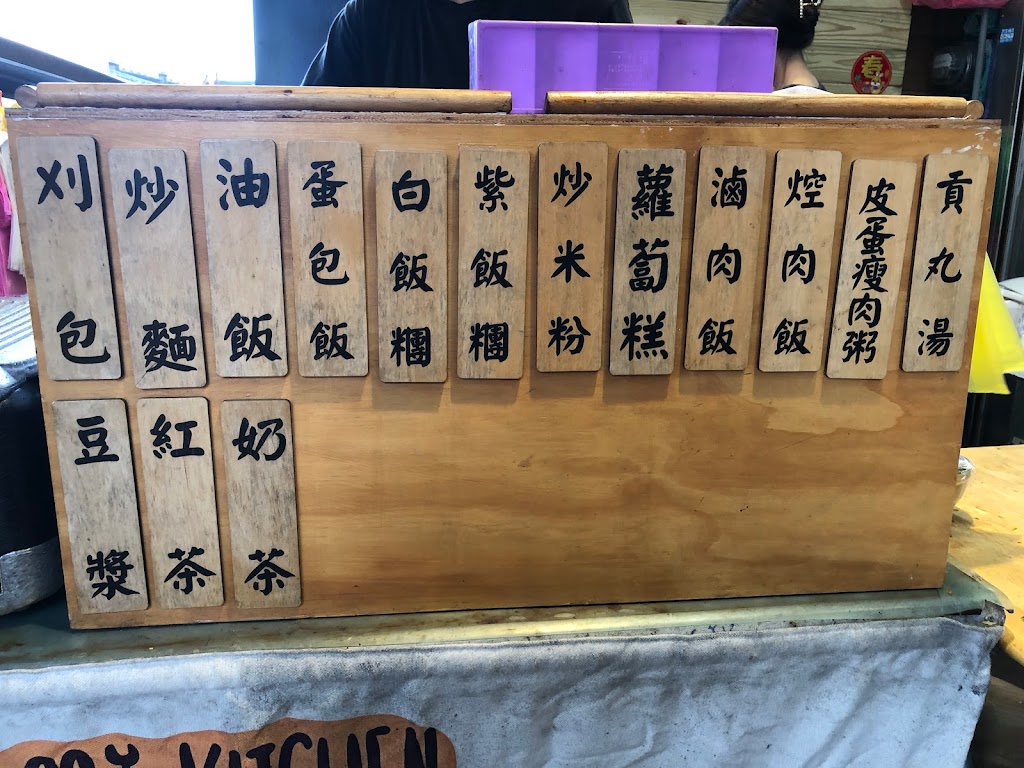 貢丸湯
皮蛋瘦肉粥
焢肉飯
滷肉飯
蘿蔔糕
炒米粉
紫飯糰
白飯糰
蛋包飯
油飯
炒麵
刈包
奶茶
紅茶
豆漿
春
KITCHEN